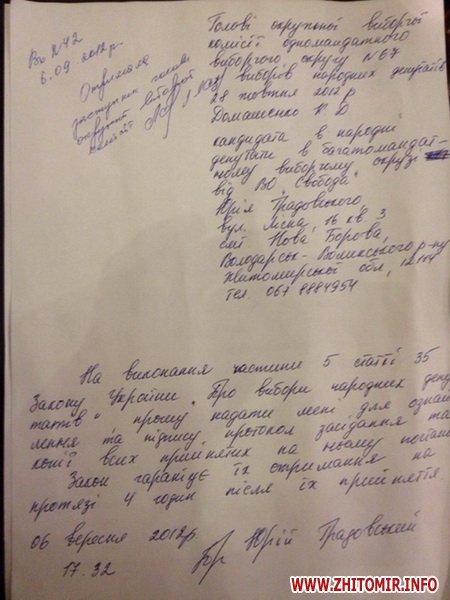 Вх N42
6.09 2012р.
Отримала
заступник голови
окружної виборчої
комісії
Голові окружної виборчої
комісії одномандатного
виборчого округу N 67
з виборів народних депутатів
28 жовтня 2012 р
Домашенко К. Д
кандидата в народні
депутати в багатомандат-
ному виборчому окрузі
від ВО „Свобода"
Юрія Градовського,
вул. Лісна, 16 кв 3
смт Нова Борова,
Володарськ-Волинського р-ну
Житомирської обл, 12114
тел. 067 8884954
На виконання частини 5 статті 35
Закону України „Про вибори народних депу
татів" прошу надати мені для ознай
млення та підпису протокол засідання та
копії всіх прийнятих на ньому
Закон гарантує їх отримання на
протязі 4 годин після їх прийняття.
06 вересня 2012р.
Юрій Градовський
17.32
WWW.ZHITOMIR.INFO